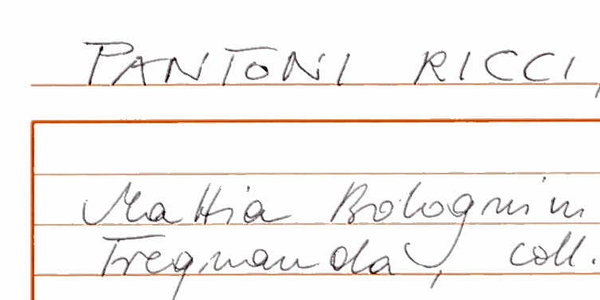 PANTONI RICCI,
Mattia Bolognin
Fregnanda, coll.